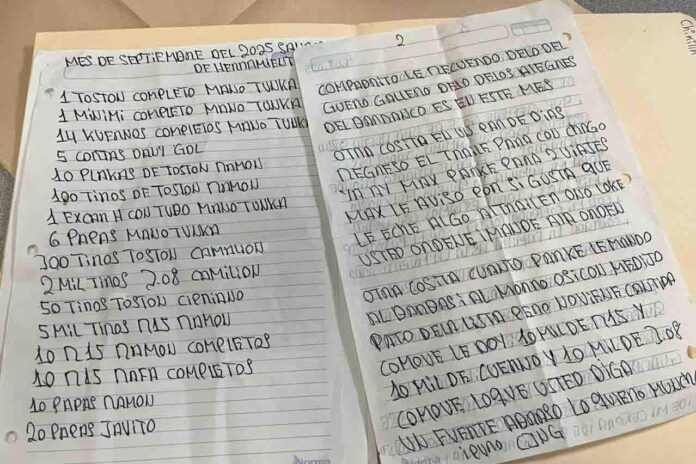 MES DE SEPTIEMBRE DEL 2025
DE HERRAMIENTA
1 TOSTON COMPLETO MANO TUNKA
1 MINIMI COMPLETO MANO TUNKA
14 KUERNOS COMPLETOS MANO TUNKA
5 CORTAS DAVY GOL
10 PLAKAS DE TOSTON RAMON
100 TIROS DE TOSTON RAMON
1 EXCAR H CON TUDO MANO TUNKA
6 PAPAS MANO TUNKA
300 TIROS TOSTON CAMALION
2 MIL TIROS 2.08 CAMILION
50 TIROS TOSTON CIPRIANO
5 MIL TIROS R15 RAMON
10 R15 RAMON COMPLETOS
10 R15 RAFA COMPLETOS
10 PAPAS RAMON
20 PAPAS JAVITO
Norma
2
COMPADRITO LE RECUERDO DELO DEL
GUERO GALLERO DELO DELOS
DEL BARRANCO ES EN ESTE MES
OTRA COSITA EN US PAR DE DIAS
REGRESO EL TANKE PARA CON CHAGO
YA AY MAX PARKE PARA 9 VIAJES
MAX LE AVISO POR SI GUSTA QUE
LE ECHE ALGO ATRAIL EN OXO LOKE
USTED ORDENE I MANDE ALA ORDEN
OTRA COSITA CUANTO PARKE LE MANDO
AL BARBAS I AL MORRO OSICON MEDITO
PATO DELA LISTA PERO NOVIENE CANTIDA
COMOVE LE DOY 10 MIL DE R15 Y
10 MIL DE CUERNO Y 10 MIL DE 308
COMOVE LOQUE USTED DIGA
UN FUENTE ABRASO LO QUIERO MUNCHO
PURO CJNG